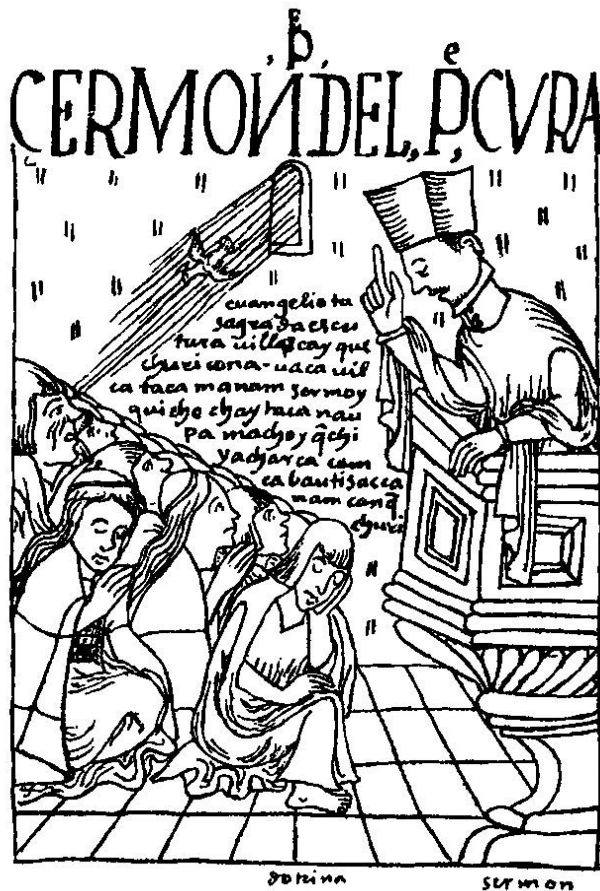 CERMON DEL, P, CVRA
cuangelio ta
sagrada escri
tura uillascay que
churicona - uaca uil
ca taca manam sermoy
qui cho chay taca nau
pa machoy q̃chi
yacharca cam
ca bautisacca
nam canq̃
churi
dotrina
sermon